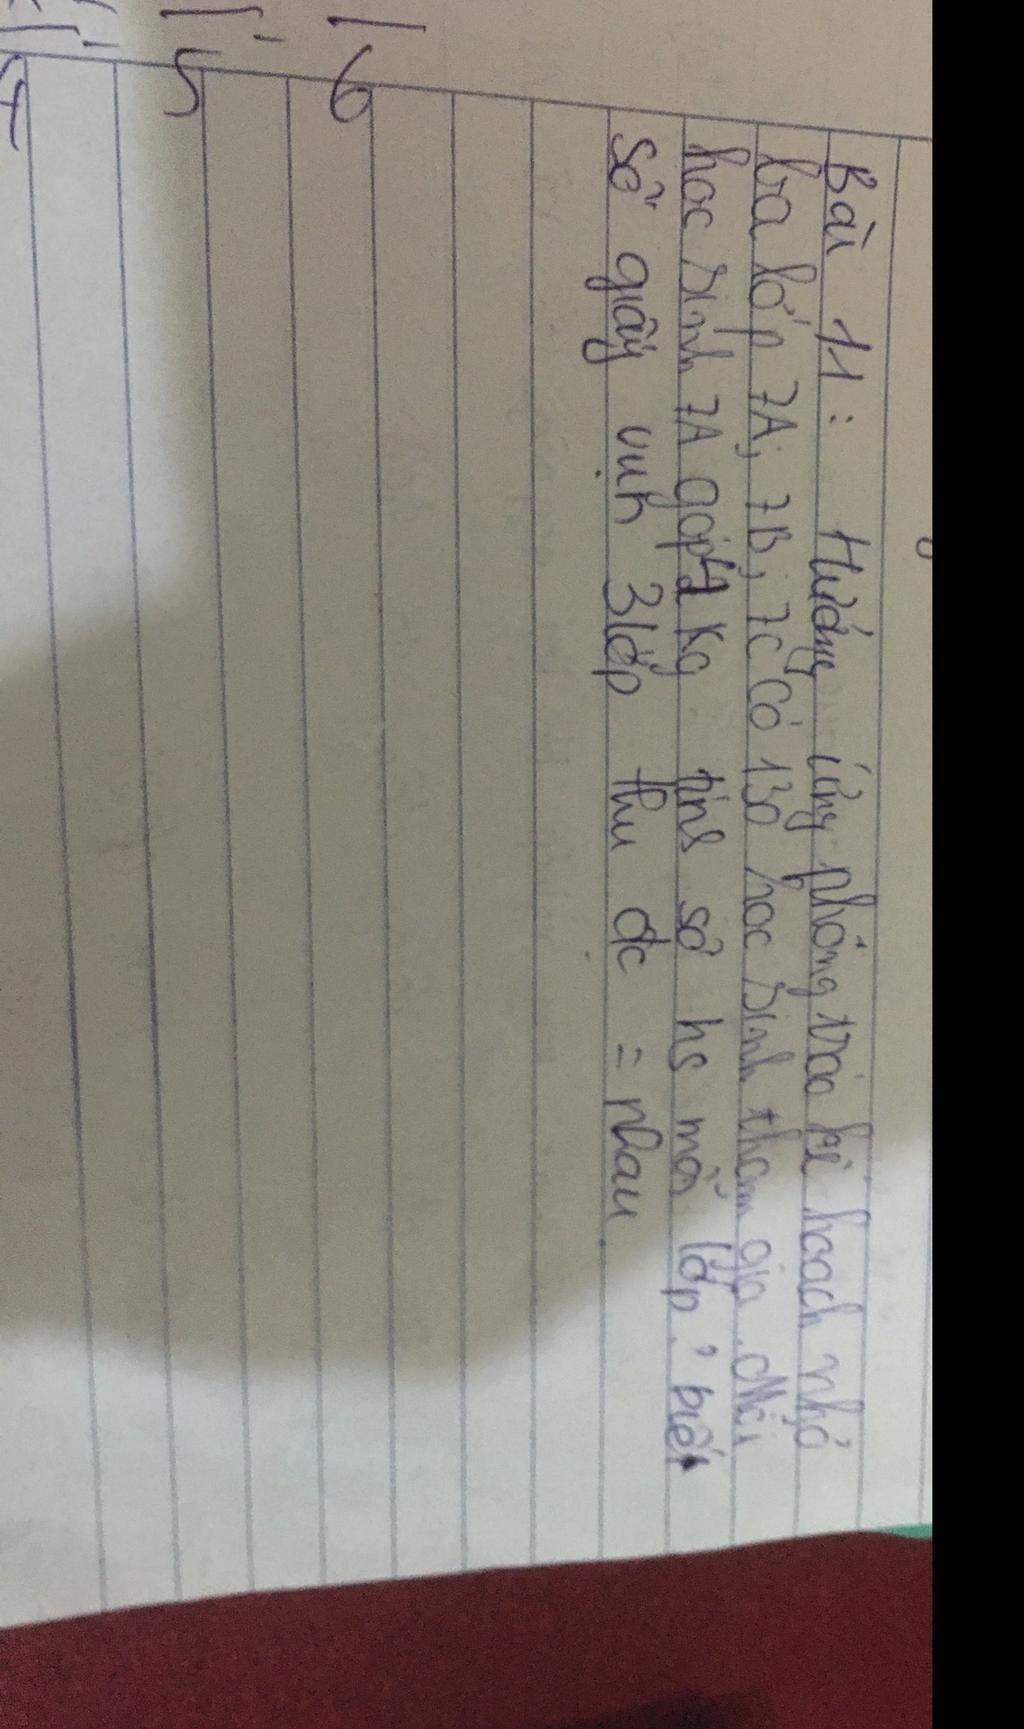 Bài 11: Hưởng ứng phong trào kế hoạch nhỏ
ba lớp 7A; 7B; 7C có 130 học sinh tham gia. Mỗi
học sinh 7A góp kg tính số hs mỗi lớp, biết
số giấy vụn 3 lớp thu đc = nhau.
6
5
4